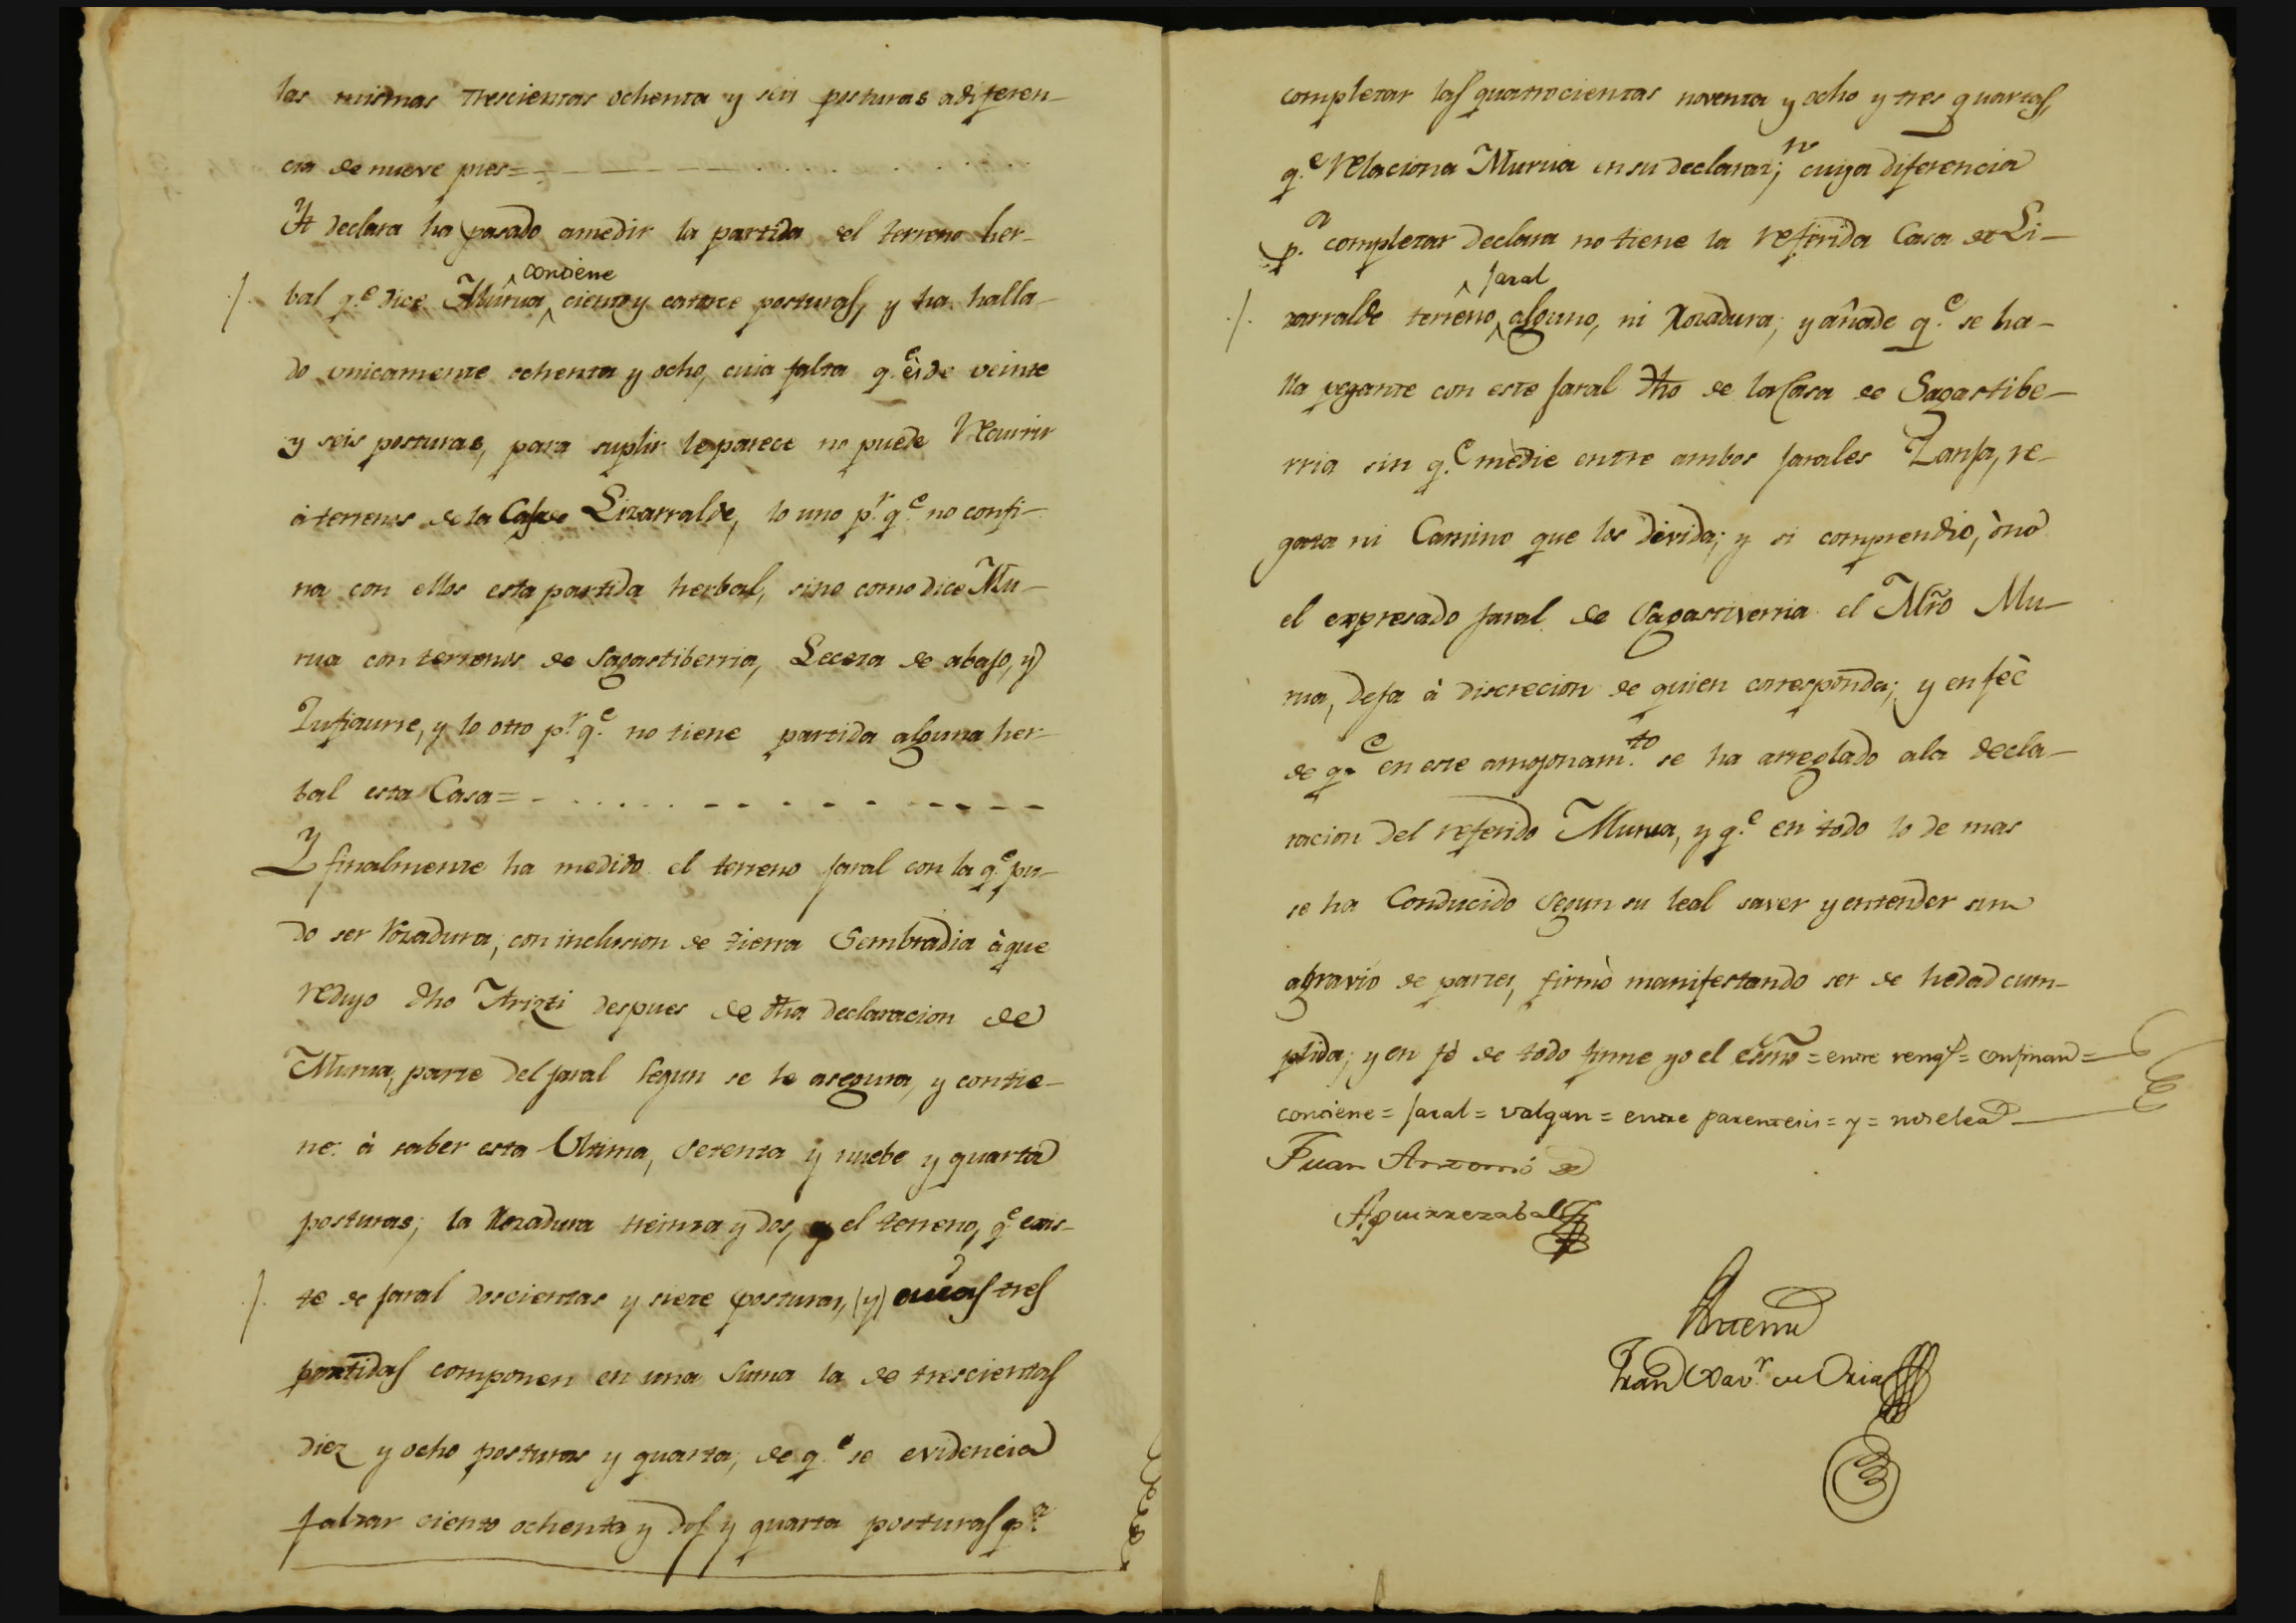 las mismas trescientas ochenta y seis posturas a diferen-
cia de nueve pies=
Yt declara ha pasado amedir la partida del terreno her-
contiene
bal q.e dice Murua, ciento y catorce posturas, y ha halla-
do unicamente ochenta y ocho, cuia falta q.e es de veinte
y seis posturas, para suplir le parece no puede recurrir
à terrenos de la Casa de Lizarralde, lo uno p.r q.e no confi-
na con ellos esta partida herbal, sino como dice Mu-
rua con terrenos de Sagastiberria, Leceta de abajo, y
y lo otro p.r q.e no tiene partida alguna her-
bal esta Casa=
Y finalmente ha medido el terreno jaral con la q.e pu-
do ser rozadura, con inclusion de tierra Sembradia àque
redujo dho Arizti despues de dha declaracion de
Murua, parte del jaral segun se le asegura, y contie-
ne: à saber esta Ultima, Setenta y nuebe y quarta
posturas; la Rozadura treinta y dos, y el terreno, q.e exis-
te de jaral doscientas y siete posturas, (y) cuias tres
partidas componen en una Suma la de trescientas
diez y ocho posturas y quarta, de q.e se evidencia
faltar ciento ochenta y dos y quarta posturas p.a
completar las quatrocientas noventa y ocho y tres quartas,
q.e relaciona Murua en su declaraz.n; cuya diferencia
p.a completar declara no tiene la referida Casa de Li-
jaral
zarralde terreno, alguno, ni Rozadura; y añade q.e se ha-
lla pegante con este jaral dho de la Casa de Sagastibe-
rria sin q.e mèdie entre ambos jarales Zanja, re-
gata ni Camino que los divida; y si comprendio, ònò
el expresado jaral de Sagastiverria el Mro Mu-
rua, deja à discrecion de quien corresponda; y en feè
de q.e en este amojonam.to se ha arreglado ala decla-
racion del referido Murua, y q.e en todo lo de mas
se ha Conducido Segun su leal saver y entender sin
agravio de partes, firmò manifestando ser de hedad cum-
plida; y en fè de todo firme yo el esño = entre rengs = confinan =
contiene = jaral = valgan = entre parentesis = y = nose lea
Juan Antonio de
Aguirrezabal
Antemi
Fran.co Xav.r de Oria